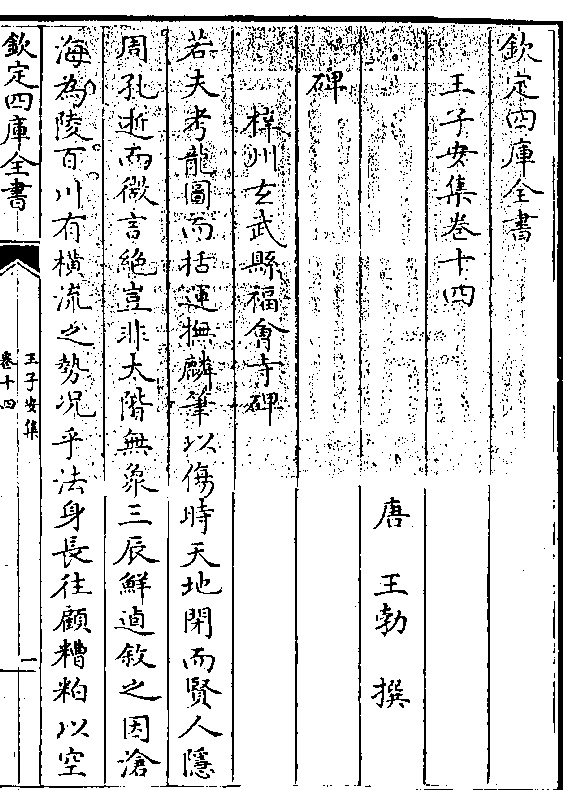 欽定四庫全書
王子安集卷十四
唐 王勃 撰
碑
梓州玄武縣福會寺碑
若夫考龍圖而括運撫麟筆以傷時天地閉而賢人隱
周孔逝而微言絶豈非大階無象三辰鮮逌敘之因滄
海為陵百川有橫流之勢况乎法身長往顧糟粕以空
欽定四庫全書
王子安集
卷十四
一